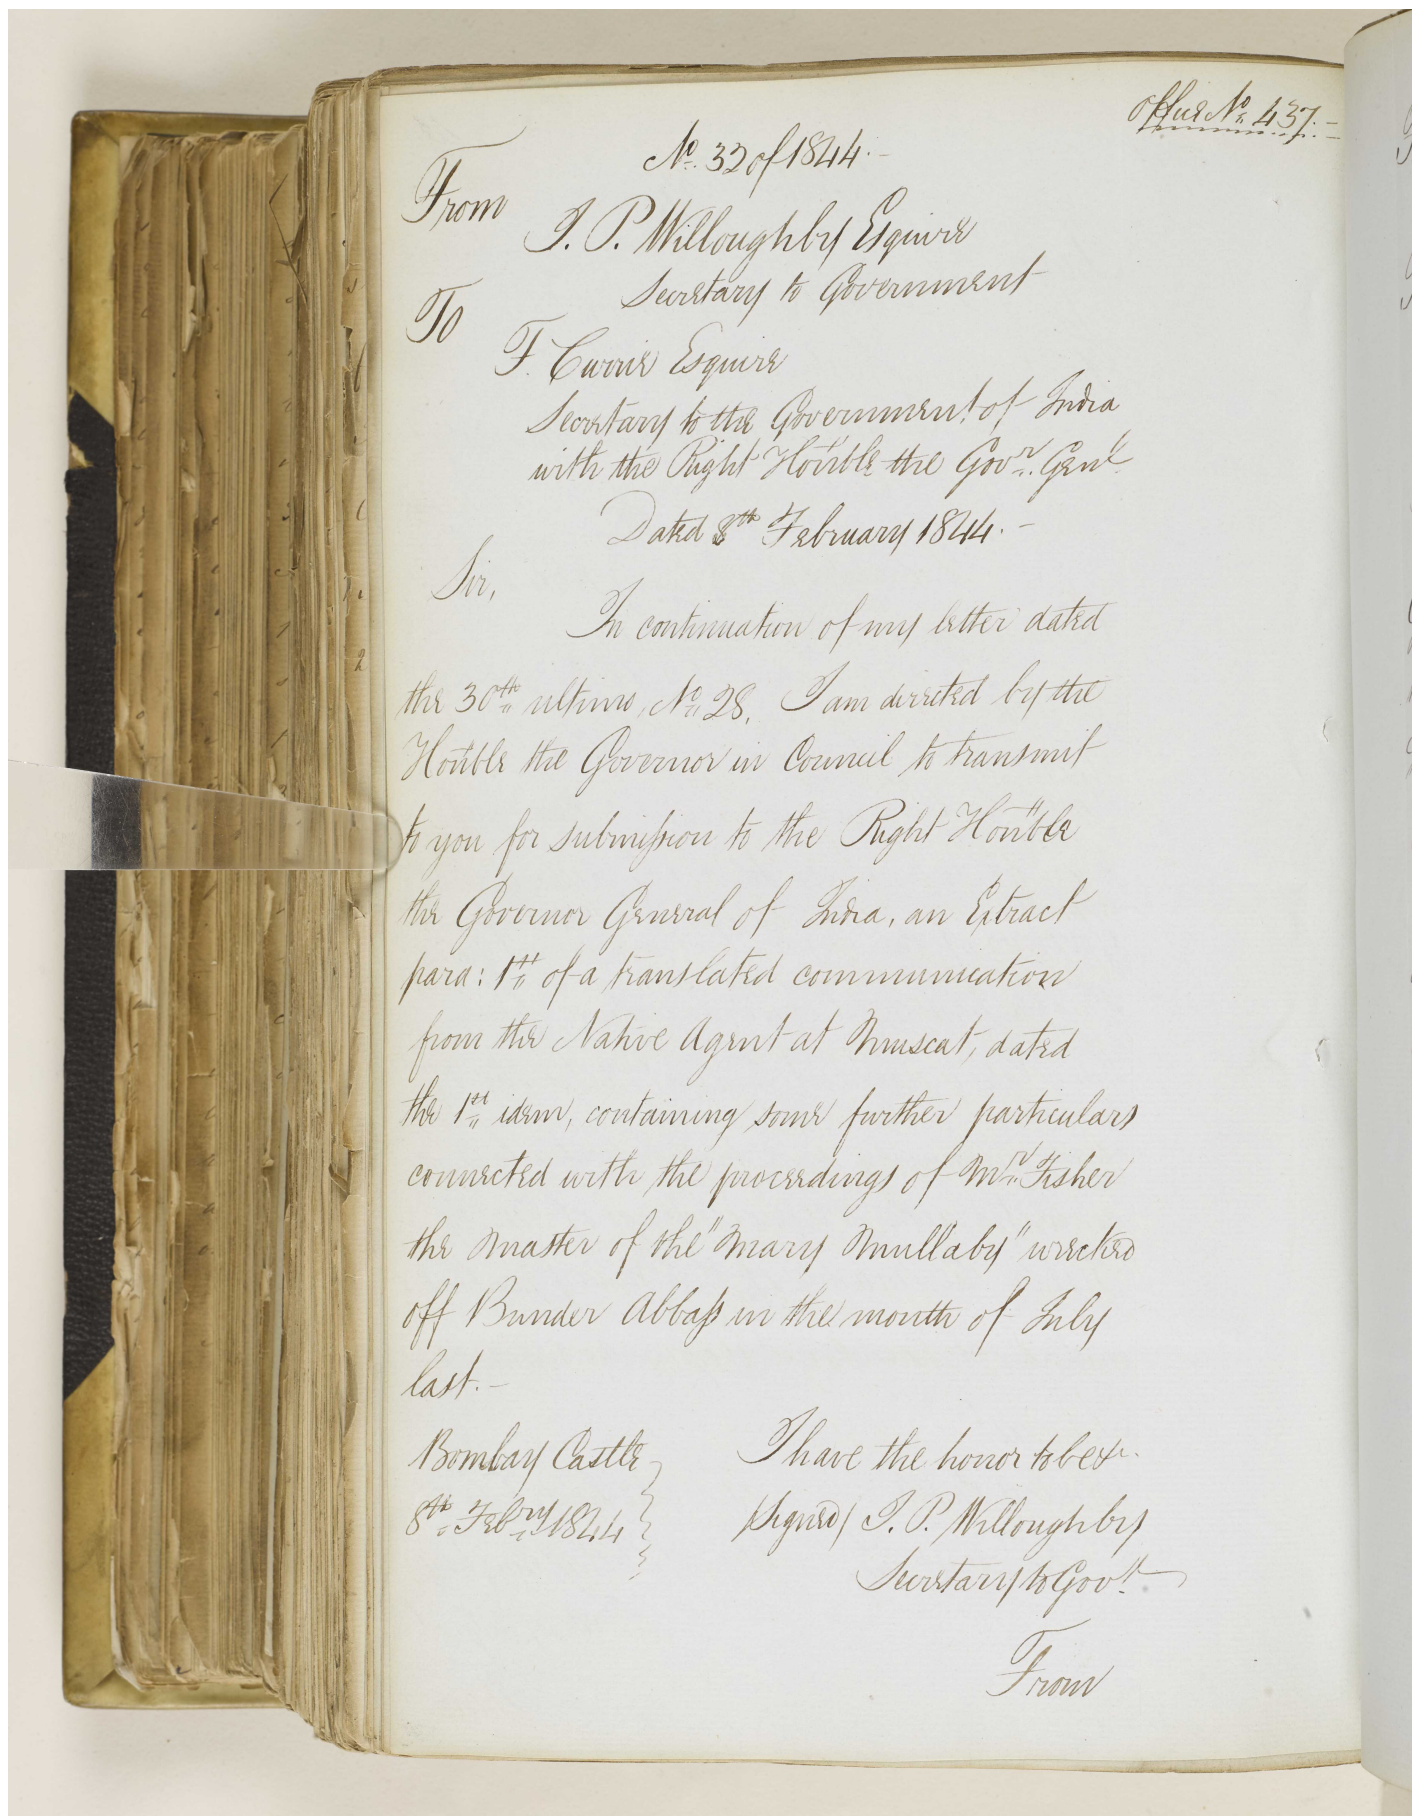 Office No. 437.-
No. 32 of 1844.-
From
J. P. Willoughby Esquire
Secretary to Government
To
F. Currie Esquire
Secretary to the Government of India
with the Right Hon'ble the Govr. Genl.
Dated 8th February 1844.-
Sir,
In continuation of my letter dated
the 30th ultimo, No. 28, I am directed by the
Hon'ble the Governor in Council to transmit
to you for submission to the Right Hon'ble
the Governor General of India, an Extract
para: 1st of a translated communication
from the Native Agent at Muscat, dated
the 1st idem, containing some further particulars
connected with the proceedings of Mr. Fisher
the Master of the "Mary Mullaby" wrecked
off Bunder Abbass in the month of July
last.-
Bombay Castle
8th Febry 1844
I have the honor to be &c.
/Signed/ J. P. Willoughby
Secretary to Govt.
From